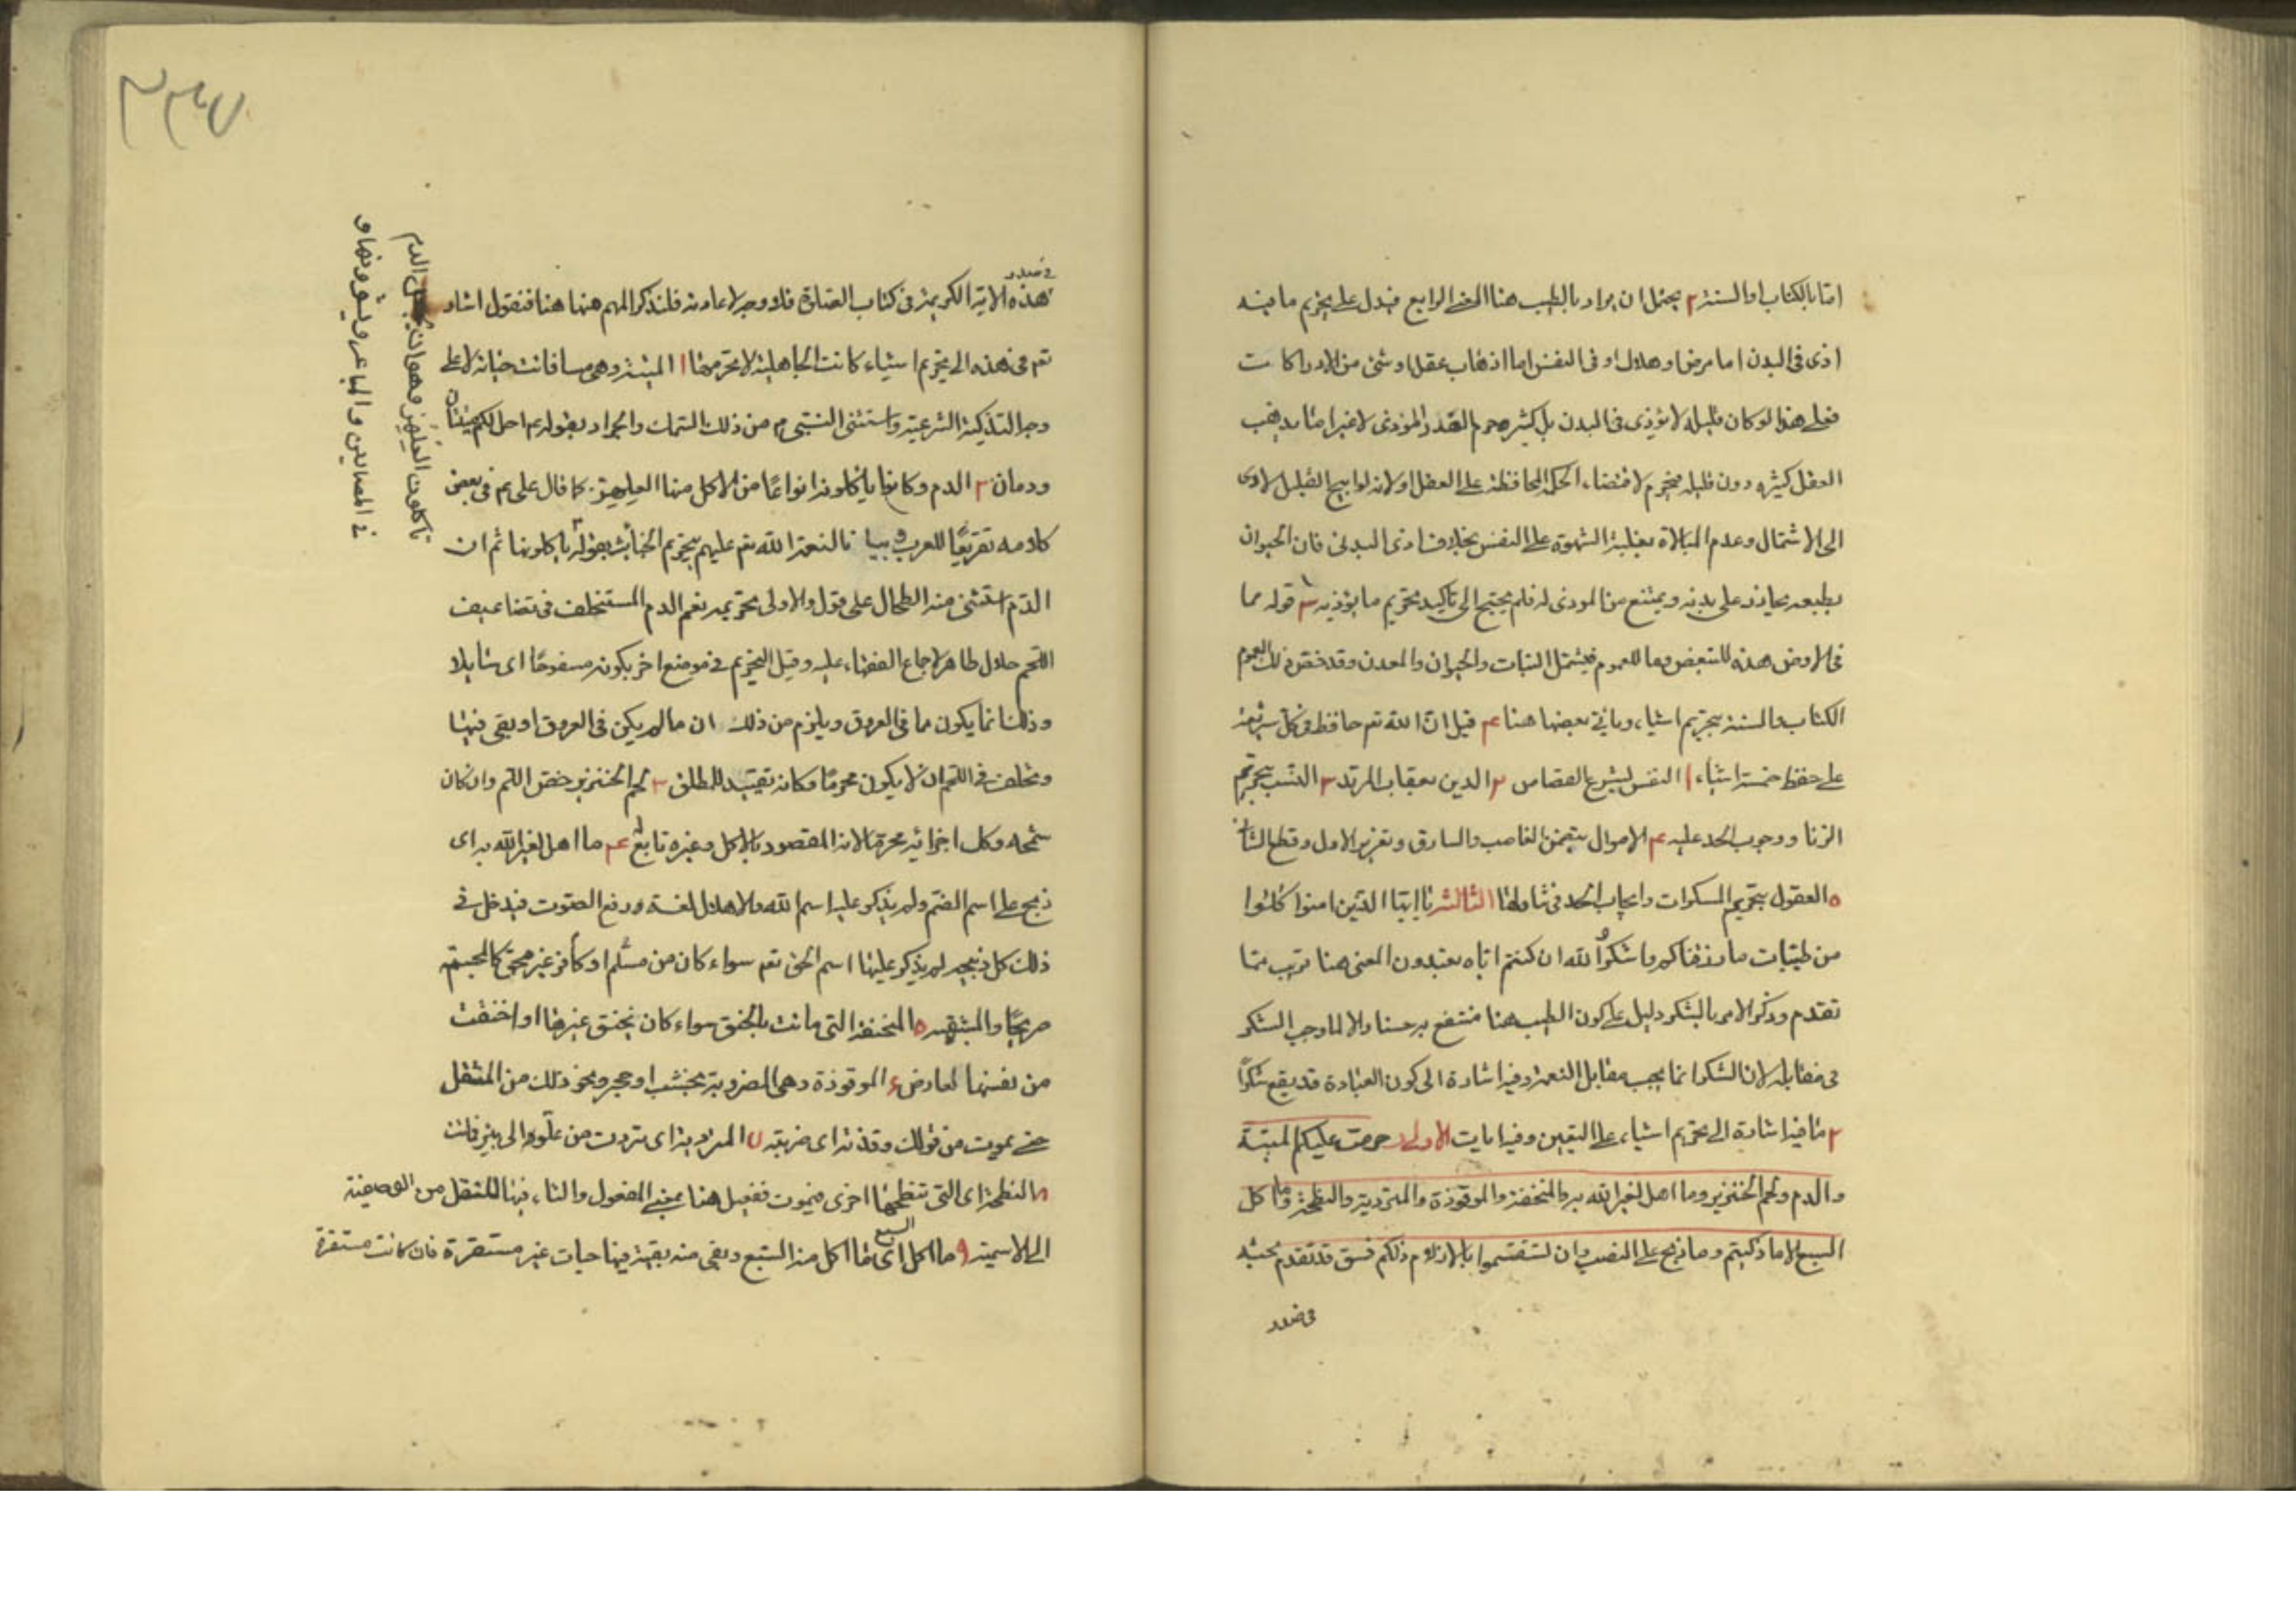 اما بالكتاب او السنة ٢ يحتمل ان يراد بالطيب هنا المعنى الرابع فيدل على تحريم ما فيه
اذى فى البدن اما مرض او هلاك او فى النفس اما اذهاب عقل او شئ من الادراكات
فعلى هذا لو كان قليله لا يؤذى فى البدن بل كثيره حرم القدر المؤذى لا غير اما ما يذهب
العقل كثيره دون قليله فيحرم لاقتضاء الحكمة المحافظة على العقل اولا لانه لو ابيح القليل لادى
الى الاشتمال وعدم المبالاة بغلبة الشهوة على النفس بخلاف اذى البدنى فان الحيوان
بطبعه يحاذر على بدنه ويمتنع من الموذى له فلم يحتج الى تأكيد تحريم ما يؤذيه ٣ قوله مما
فى الارض هذه للتبعيض وما للعموم فيشتمل النبات والحيوان والمعدن وقد خص ذلك العموم
الكتاب والسنة بتحريم اشياء وياتى بعضها هنا ع قيل ان الله تعم حافظ فى كل شريعة
على حفظ خمسة اشياء ١ النفس لشرع القصاص ٢ الدين بعقاب المرتد ٣ النسب بتحريم
الزنا ووجوب الحد عليه ع الاموال بتضمن الغاصب والسارق وتعزير الاول وقطع الثانى
٥ العقول بتحريم المسكرات وايجاب الحد فى تناولها الثالثة يا ايها الذين امنوا كلوا
من طيبات ما رزقناكم واشكروا لله ان كنتم اياه تعبدون المعنى هنا قريب مما
تقدم وذكر الامر بالشكر دليل على كون الطيب هنا منتفع به حسنا والا لما وجب الشكر
فى مقابله لان الشكر انما يجب مقابل النعمة وفيه اشارة الى كون العبادة قد يقع شكرا
٢ ما فيه اشارة الى تحريم اشياء على التعيين وفيه ايات الاولى حرمت عليكم الميتة
والدم ولحم الخنزير وما اهل لغير الله به والمنخنقة والموقوذة والمتردية والنطيحة وما اكل
السبع الا ما ذكيتم وما ذبح على النصب وان تستقسموا بالازلام ذلكم فسق قد تقدم بحث
فى صدر
٣٣٧
فى صدر
هذه الاية الكريمة فى كتاب الصلوة فلا وجه لاعادته فلنذكر المهم منها هنا فنقول اشار
تعم فى هذه الى تحريم اشياء كانت الجاهلية لا تحرمها ١ الميتة وهى ما فارقت حياته لا على
وجه التذكية الشرعية واستثنى النبى م من ذلك السمك والجراد بقوله م احل لكم ميتتان
ودمان ٢ الدم وكانوا ياكلون انواعا من الاكل منها العلهز كما قال على م فى بعض
كلامه تقريعا للعرب وبيانا لنعمة الله تعم عليهم بتحريم الخبائث بقوله ياكلونها ثم ان
الدم استثنى منه الطحال على قول والاولى تحريمه نعم الدم المستخلف فى تضاعيف
اللحم حلال طاهر لاجماع الفقهاء عليه وقيل التحريم فى موضع اخر بكونه مسفوحا اى سايلا
وذلك انما يكون مما فى العروق ويلزم من ذلك ان ما لم يكن فى العروق او بقى فيها
وتخلف فى اللحم ان لا يكون محرما وكانه تقييد للمطلق ٣ لحم الخنزير خص اللحم وان كان
شحمه وكل اجزائه محرما لانه المقصود بالاكل وغيره تابع له ع ما اهل لغير الله به اى
ذبح على اسم الصنم ولم يذكر عليه اسم الله والاهلال لغة ورفع الصوت فيدخل فى
ذلك كل ذبيحة لم يذكر عليها اسم الحق تعم سواء كان من مسلم او كافر غير محق كالمجسمة
صريحا والمشبهة ٥ المنخنقة التى ماتت بالخنق سواء كان بخنق غيرها او اختنقت
من نفسها لعارض ٦ الموقوذة وهى المضروبة بخشب او حجر ونحو ذلك من المثقل
حتى يموت من قولك وقذته اى ضربته ٧ المتردية اى تردت من علو او الى بئر فماتت
٨ النطيحة اى التى تنطحها اخرى فيموت ففعيل هنا بمعنى المفعول والتاء فيها للنقل من الوصفية
الى الاسمية ٩ وما اكل السبع اى ما اكل منه السبع وبقى منه بقية فيها حيات غير مستقرة فان كانت مستقرة
تأكلون العلهز وهو ان يجعل الدم
فى المصارين والمباعر ويشوونها و